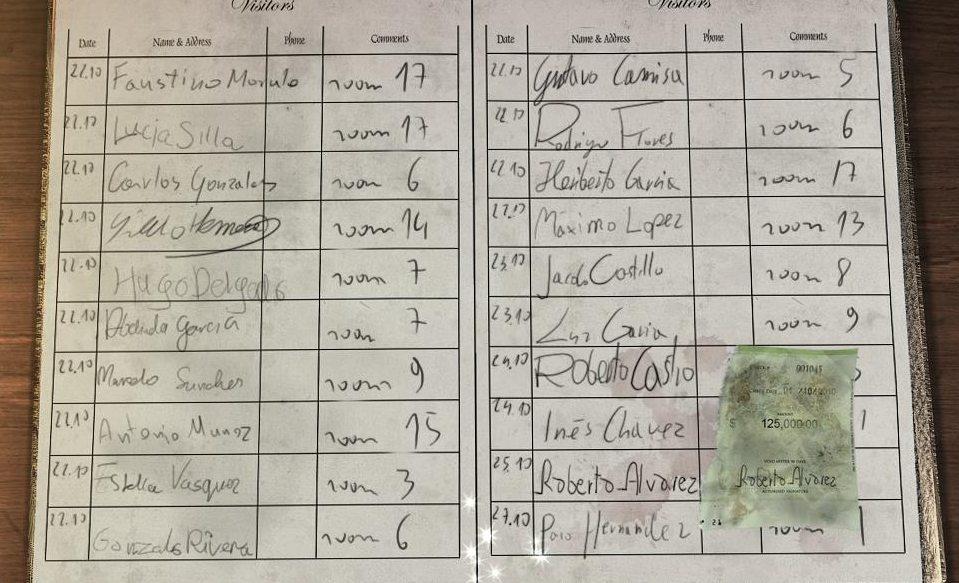 Visitors
Date Name & Address Phone Comments
22.10 Faustino Morulo room 17
22.10 Lucja Silla room 17
22.10 Carlos Gonzales room 6
22.10 room 14
22.10 Hugo Delgado room 7
22.10 Garcia room 7
22.10 Marcelo Sanches room 9
22.10 Antonio Munoz room 15
22.10 Estella Vasquez room 3
22.10 Gonzalo Rivera room 6
Visitors
Date Name & Address Phone Comments
22.10 Gustavo Camisa room 5
22.10 Rodrigo Flores room 6
22.10 Heriberto Garcia room 17
22.10 Máximo Lopez room 13
23.10 Castillo room 8
23.10 Luz Garcia room 9
24.10 Roberto Castro
24.10 Inés Chávez 1
25.10 Roberto Alvarez
27.10 Hernandez room 1
001045
AMOUNT
$ 125,000.00
Roberto Alvarez
AUTHORIZED SIGNATURE